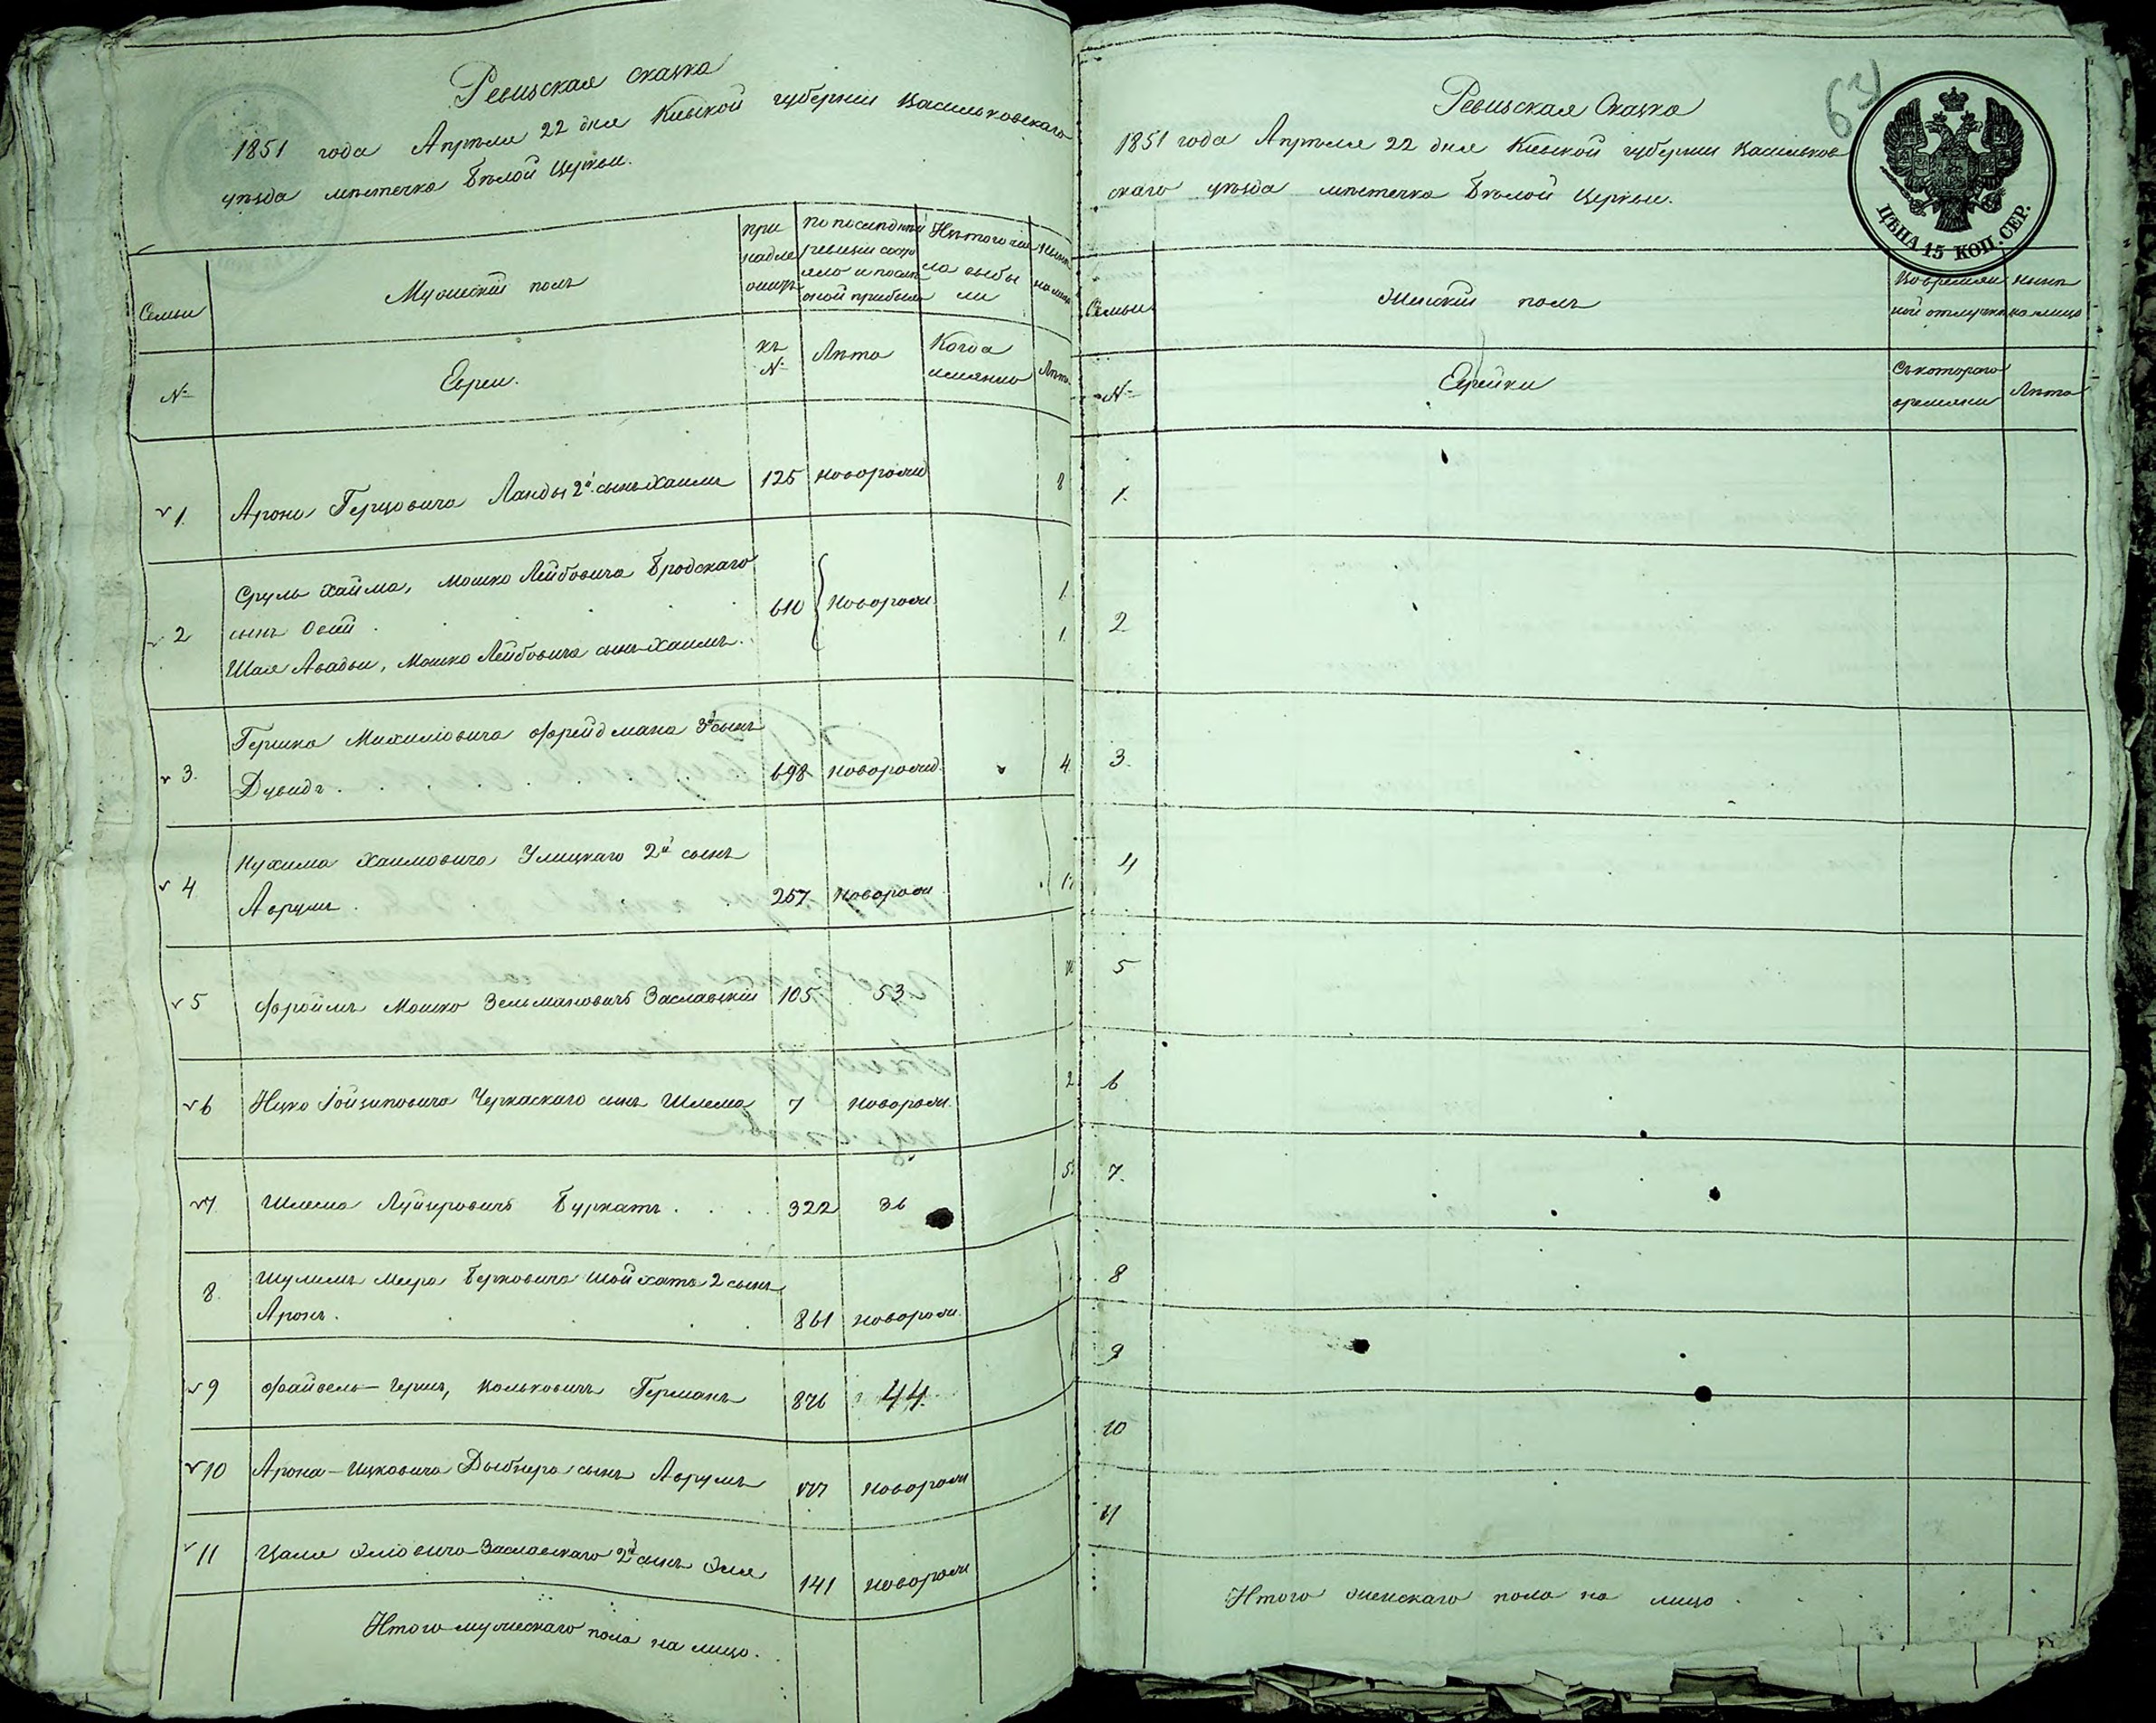 Ревизская сказка
1851 года Апреля 22 дня Киевской губернии Васильковскаго
уѣзда мѣстечка Бѣлой Церкви.
Семьи
Мужескій полъ
при
надле
житъ
По последней
ревизіи состо
яло и после
оной прибыло
Изъ того чи
сла выбы
ли
Нынѣ
на лицо
№
Евреи.
къ
№
Лѣта
Когда
имянно
Лѣта
1. Арона Герцовича Ланды 2й сынъ Хаимъ 125 новорожд 8
2 Сруль Хайма, Мошко Лейбовича Бродскаго
сынъ Овсей 610 новорожд. 1.
Шая Авадьи, Мошко Лейбовича сынъ Хаимъ. 1.
3. Гершка Михиліовича Фрейдмана 3й сынъ
Дувидъ 698 новорожд. 4
4. Нухима Хаимовича Улицкаго 2й сынъ
Аврумъ 257 новорожд
5 Фроимъ Мошко Зельмановичъ Заславскій 105 53
6 Ицко Іойзиповича Черкаскаго сынъ Шлема 7 новорожд. 2
7. Шлема Луйзеровичъ Буркатъ 322 36 5
8. Шулимъ Меера Берковича Шойхата 2 сынъ
Аронъ. 861 новорожд.
9 Файвель-Гершъ, Вольковичъ Германъ 876 44.
10 Арона-Ицковича Дыбнера сынъ Аврумъ 177 новорожд
11 Цаля Эліовича Заславскаго 2й сынъ Эля 141 новорожд
Итого мужескаго пола на лицо.
63
Ревизская Сказка
1851 года Апреля 22 дня Киевской губернии Васильков
скаго уѣзда мѣстечка Бѣлой Церкви.
ЦѢНА 15 КОП. СЕР.
Семьи
Женскій полъ
Во времен
ной отлучке
Нынѣ
на лицо
№
Еврейки
Съ котораго
времени
Лѣта
1.
2
3.
4
5
6
7.
8
9
10
11
Итого женскаго пола на лицо